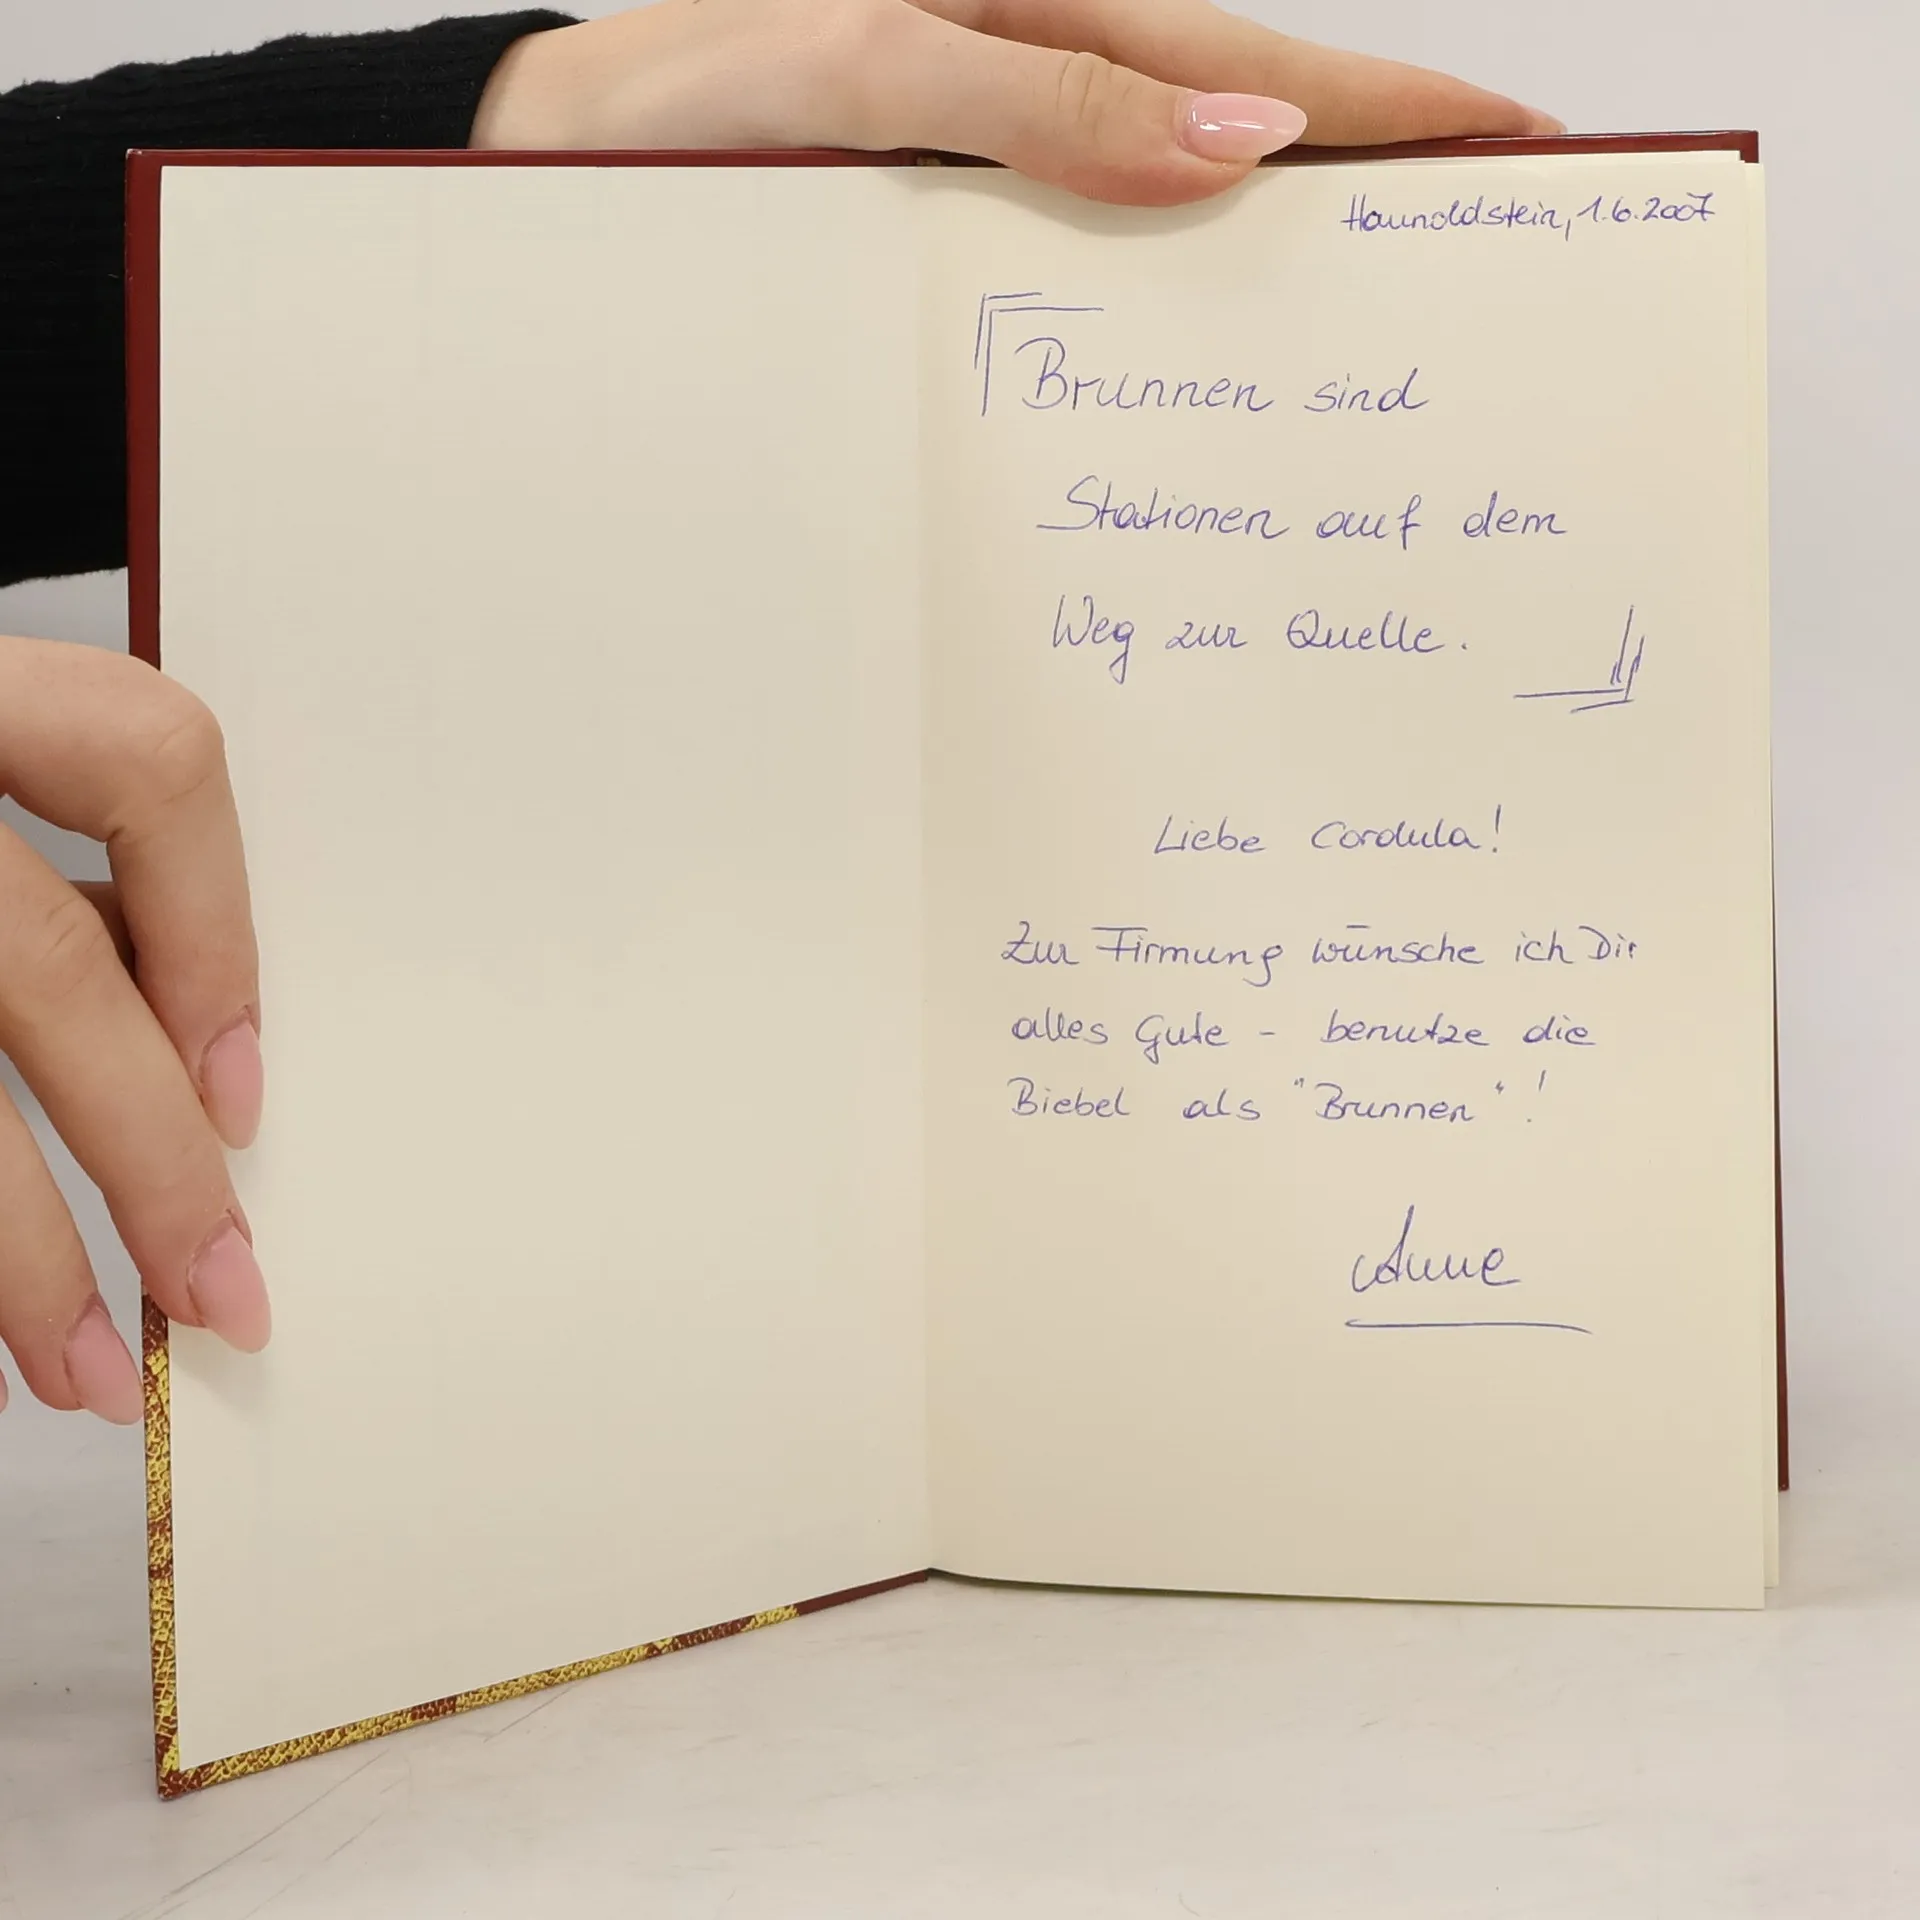 Haunoldstein, 1.6.2007
Brunnen sind
Stationen auf dem
Weg zur Quelle.
Liebe Cordula!
Zur Firmung wünsche ich Dir
alles Gute - benutze die
Biebel als "Brunnen"!
Anne